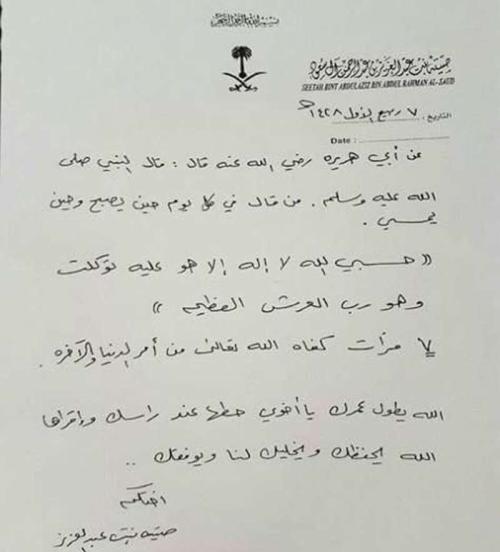 بسم الله الرحمن الرحيم
صيتة بنت عبد العزيز بن عبد الرحمن آل سعود
SEETAH BINT ABDULAZIZ BIN ABDUL RAHMAN AL-SAUD
التاريخ: ٧ ربيع الأول ١٤٢٨هـ
Date:
عن أبي هريره رضي الله عنه قال: قال النبي صلى
الله عليه وسلم. من قال في كل يوم حين يصبح وحين
يمسي.
(( حسبي الله لا إله إلا هو عليه توكلت
وهو رب العرش العظيم ))
٧ مرات كفاه الله تعالى من أمر الدنيا والآخره.
الله يطول عمرك يا أخوي حطها عند راسك وإقراها
الله يحفظك ويخليك لنا ويوفقك ..
اختكم
صيته بنت عبد العزيز